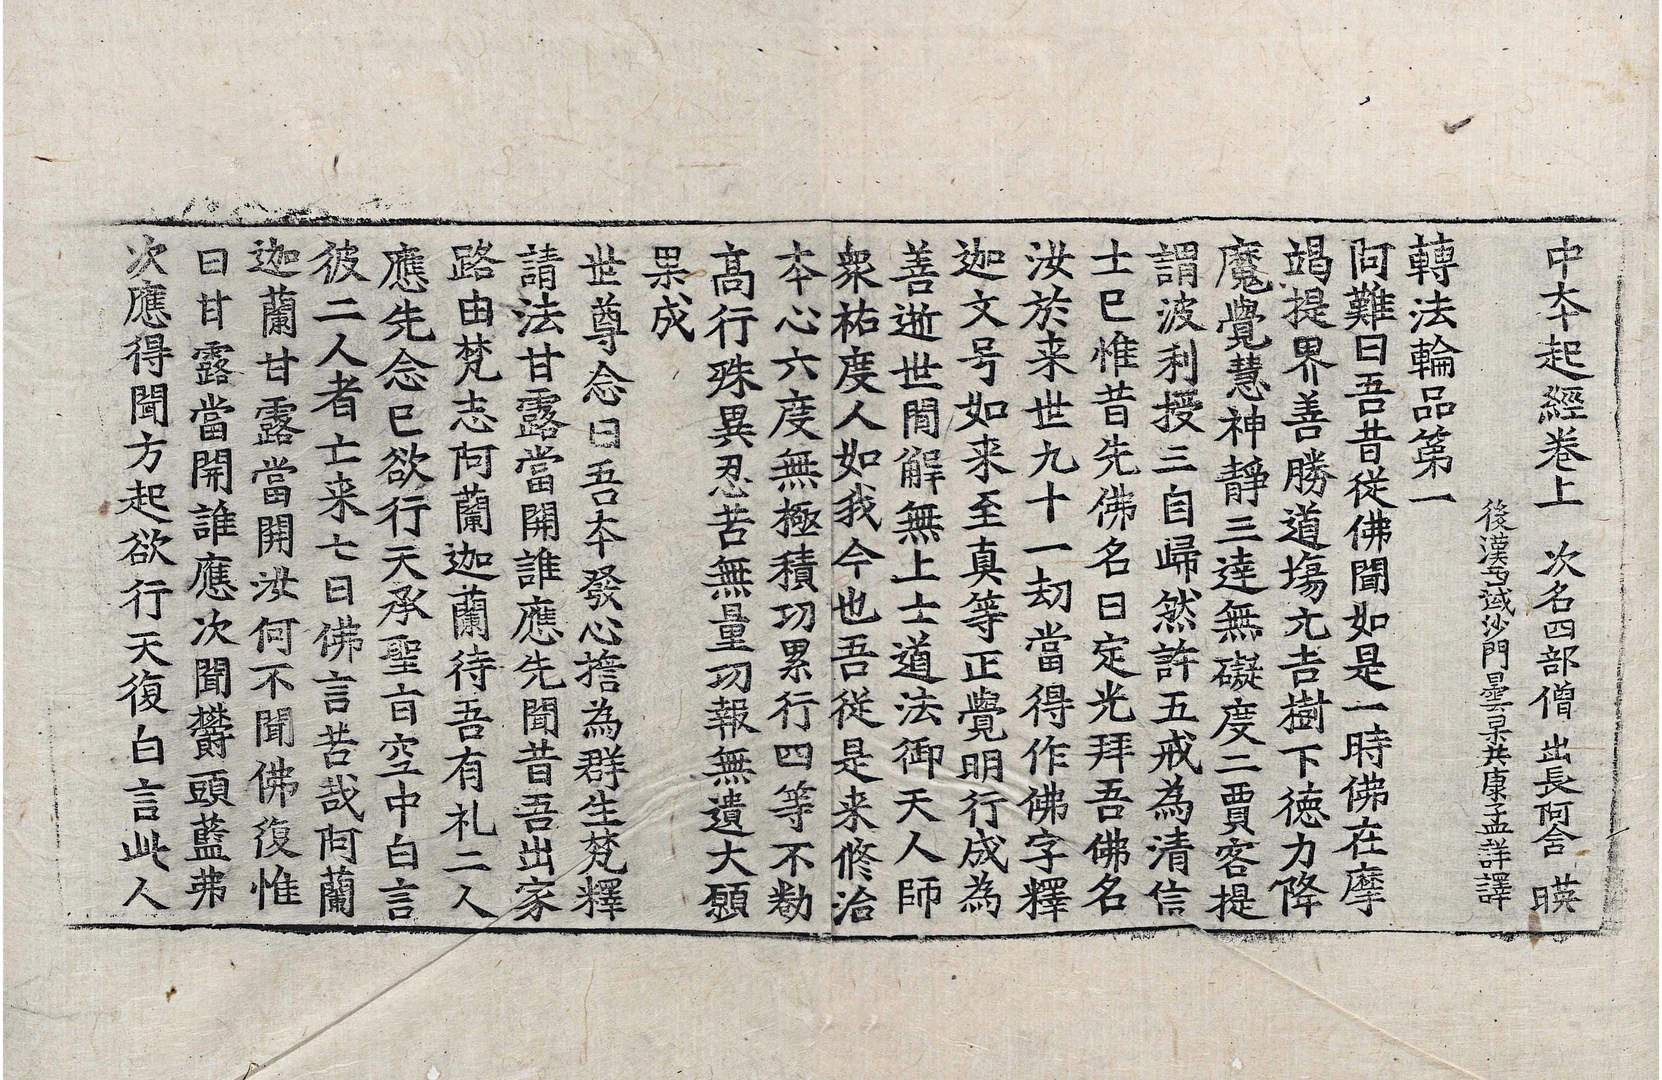 中夲起經卷上 次名四部僧 出長阿含 暎
後漢西域沙門曇杲共康孟詳譯
轉法輪品第一
阿難曰吾昔從佛聞如是一時佛在摩
竭提界善勝道塲元吉樹下徳力降
魔覺慧神靜三達無礙度二賈客提
謂波利授三自歸然許五戒為清信
士已惟昔先佛名曰定光拜吾佛名
汝於来世九十一劫當得作佛字釋
迦文号如来至真等正覺明行成為
善逝世間解無上士道法御天人師
衆祐度人如我今也吾從是来修治
夲心六度無極積功累行四等不勌
髙行殊異忍苦無量功報無遺大願
果成
世尊念曰吾夲發心擔為群生梵釋
請法甘露當開誰應先聞昔吾出家
路由梵志阿蘭迦蘭待吾有礼二人
應先念已欲行天承聖旨空中白言
彼二人者亡来七日佛言苦哉阿蘭
迦蘭甘露當開汝何不聞佛復惟
曰甘露當開誰應次聞欝頭藍弗
次應得聞方起欲行天復白言此人